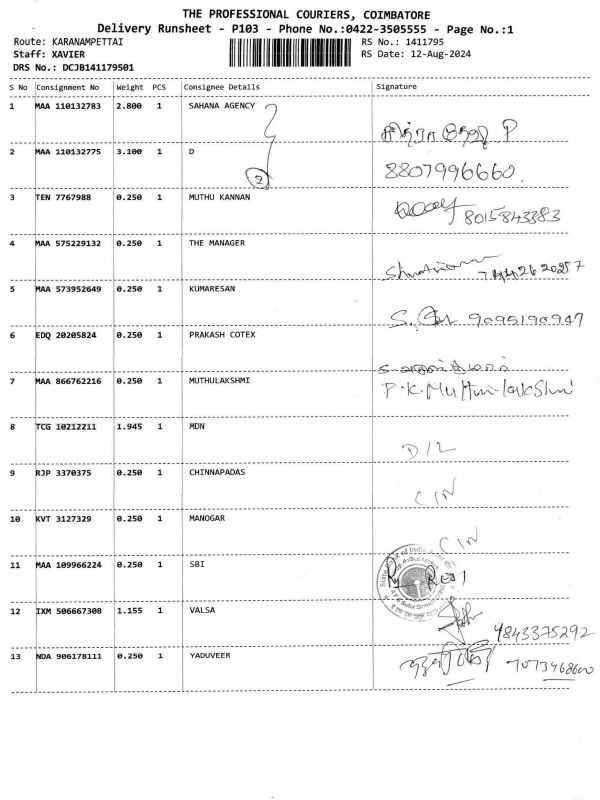 THE PROFESSIONAL COURIERS, COIMBATORE
Delivery Runsheet - P103 - Phone No.:0422-3505555 - Page No.:1
Route: KARANAMPETTAI RS No.: 1411795
Staff: XAVIER RS Date: 12-Aug-2024
DRS No.: DCJB141179501
S No Consignment No Weight PCS Consignee Details Signature
1 MAA 110132783 2.800 1 SAHANA AGENCY
2 MAA 110132775 3.100 1 D 8807996660
2
3 TEN 7767988 0.250 1 MUTHU KANNAN 8015843383
4 MAA 575229132 0.250 1 THE MANAGER
5 MAA 573952649 0.250 1 KUMARESAN 9095190947
6 EDQ 20205824 0.250 1 PRAKASH COTEX
7 MAA 866762216 0.250 1 MUTHULAKSHMI P.K.Muthulakshmi
8 TCG 10212211 1.945 1 MDN D/L
9 RJP 3370375 0.250 1 CHINNAPADAS CIN
10 KVT 3127329 0.250 1 MANOGAR CIN
11 MAA 109966224 0.250 1 SBI State Bank of India
12 IXM 506667308 1.155 1 VALSA 9843375292
13 NDA 906178111 0.250 1 YADUVEER 7073468600